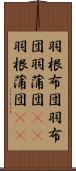 羽根布団羽布
団羽蒲団
羽根蒲団